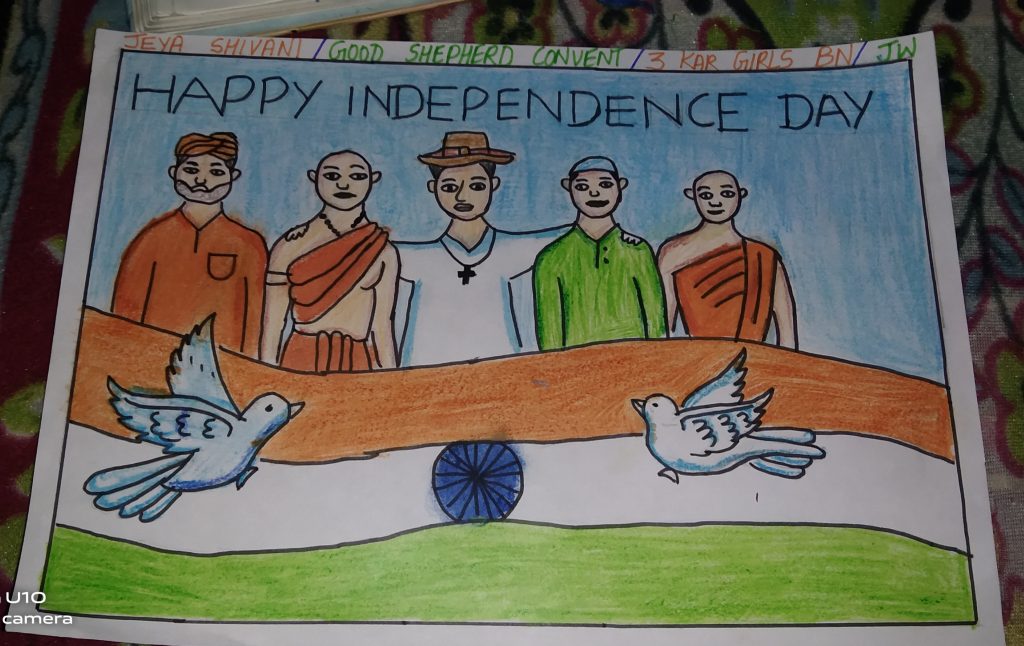 JEYA SHIVANI / GOOD SHEPHERD CONVENT / 3 KAR GIRLS BN / JW
HAPPY INDEPENDENCE DAY
U10
camera